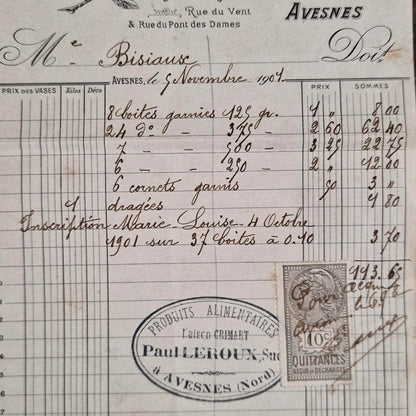 Rue du Vent
& Rue du Pont des Dames
AVESNES
Me Bisiaux Doit
AVESNES, le 5 Novembre 1901.
PRIX DES VASES Kilos Déca PRIX SOMMES
8 boîtes garnies 125 gr. 1 " 8 00
24 do - 375 - 2 60 62 40
7 - 500 - 3 25 22 75
6 - 250 - 2 " 12 00
6 cornets garnis 50 3 "
1 dragées 4 80
Inscription Marie-Louise 4 Octobre
1901 sur 37 boîtes à 0.10 3 70
113.65
Pour acquit
PRODUITS ALIMENTAIRES
Maison GRIMART
Paul LEROUX, Suc
à AVESNES (Nord)
10c
QUITTANCES
REÇUS ET DÉCHARGES